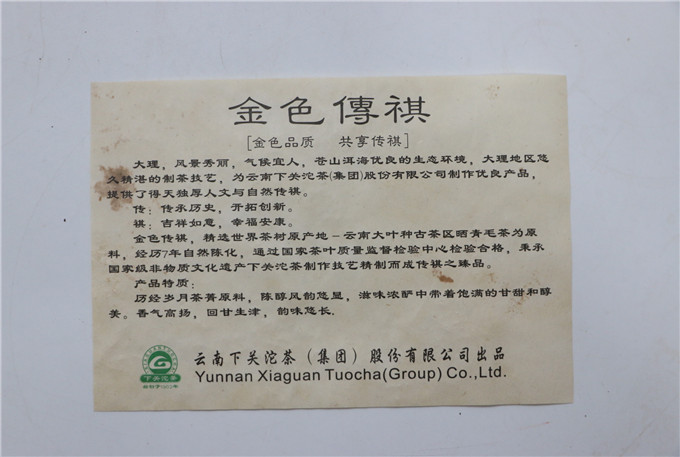 金色傳祺
[金色品质 共享传祺]
大理，风景秀丽，气候宜人，苍山洱海优良的生态环境，大理地区悠
久精湛的制茶技艺，为云南下关沱茶(集团)股份有限公司制作优良产品，
提供了得天独厚人文与自然传祺。
传：传承历史，开拓创新。
祺：吉祥如意，幸福安康。
金色传祺，精选世界茶树原产地－云南大叶种古茶区晒青毛茶为原
料，经历7年自然陈化，通过国家茶叶质量监督检验中心检验合格，秉承
国家级非物质文化遗产下关沱茶制作技艺精制而成传祺之臻品。
产品特质：
历经岁月茶菁原料，陈醇风韵悠显，滋味浓酽中带着饱满的甘甜和醇
美。香气高扬，回甘生津，韵味悠长.
云南下关沱茶（集团）股份有限公司出品
Yunnan Xiaguan Tuocha(Group) Co.,Ltd.
下关沱茶